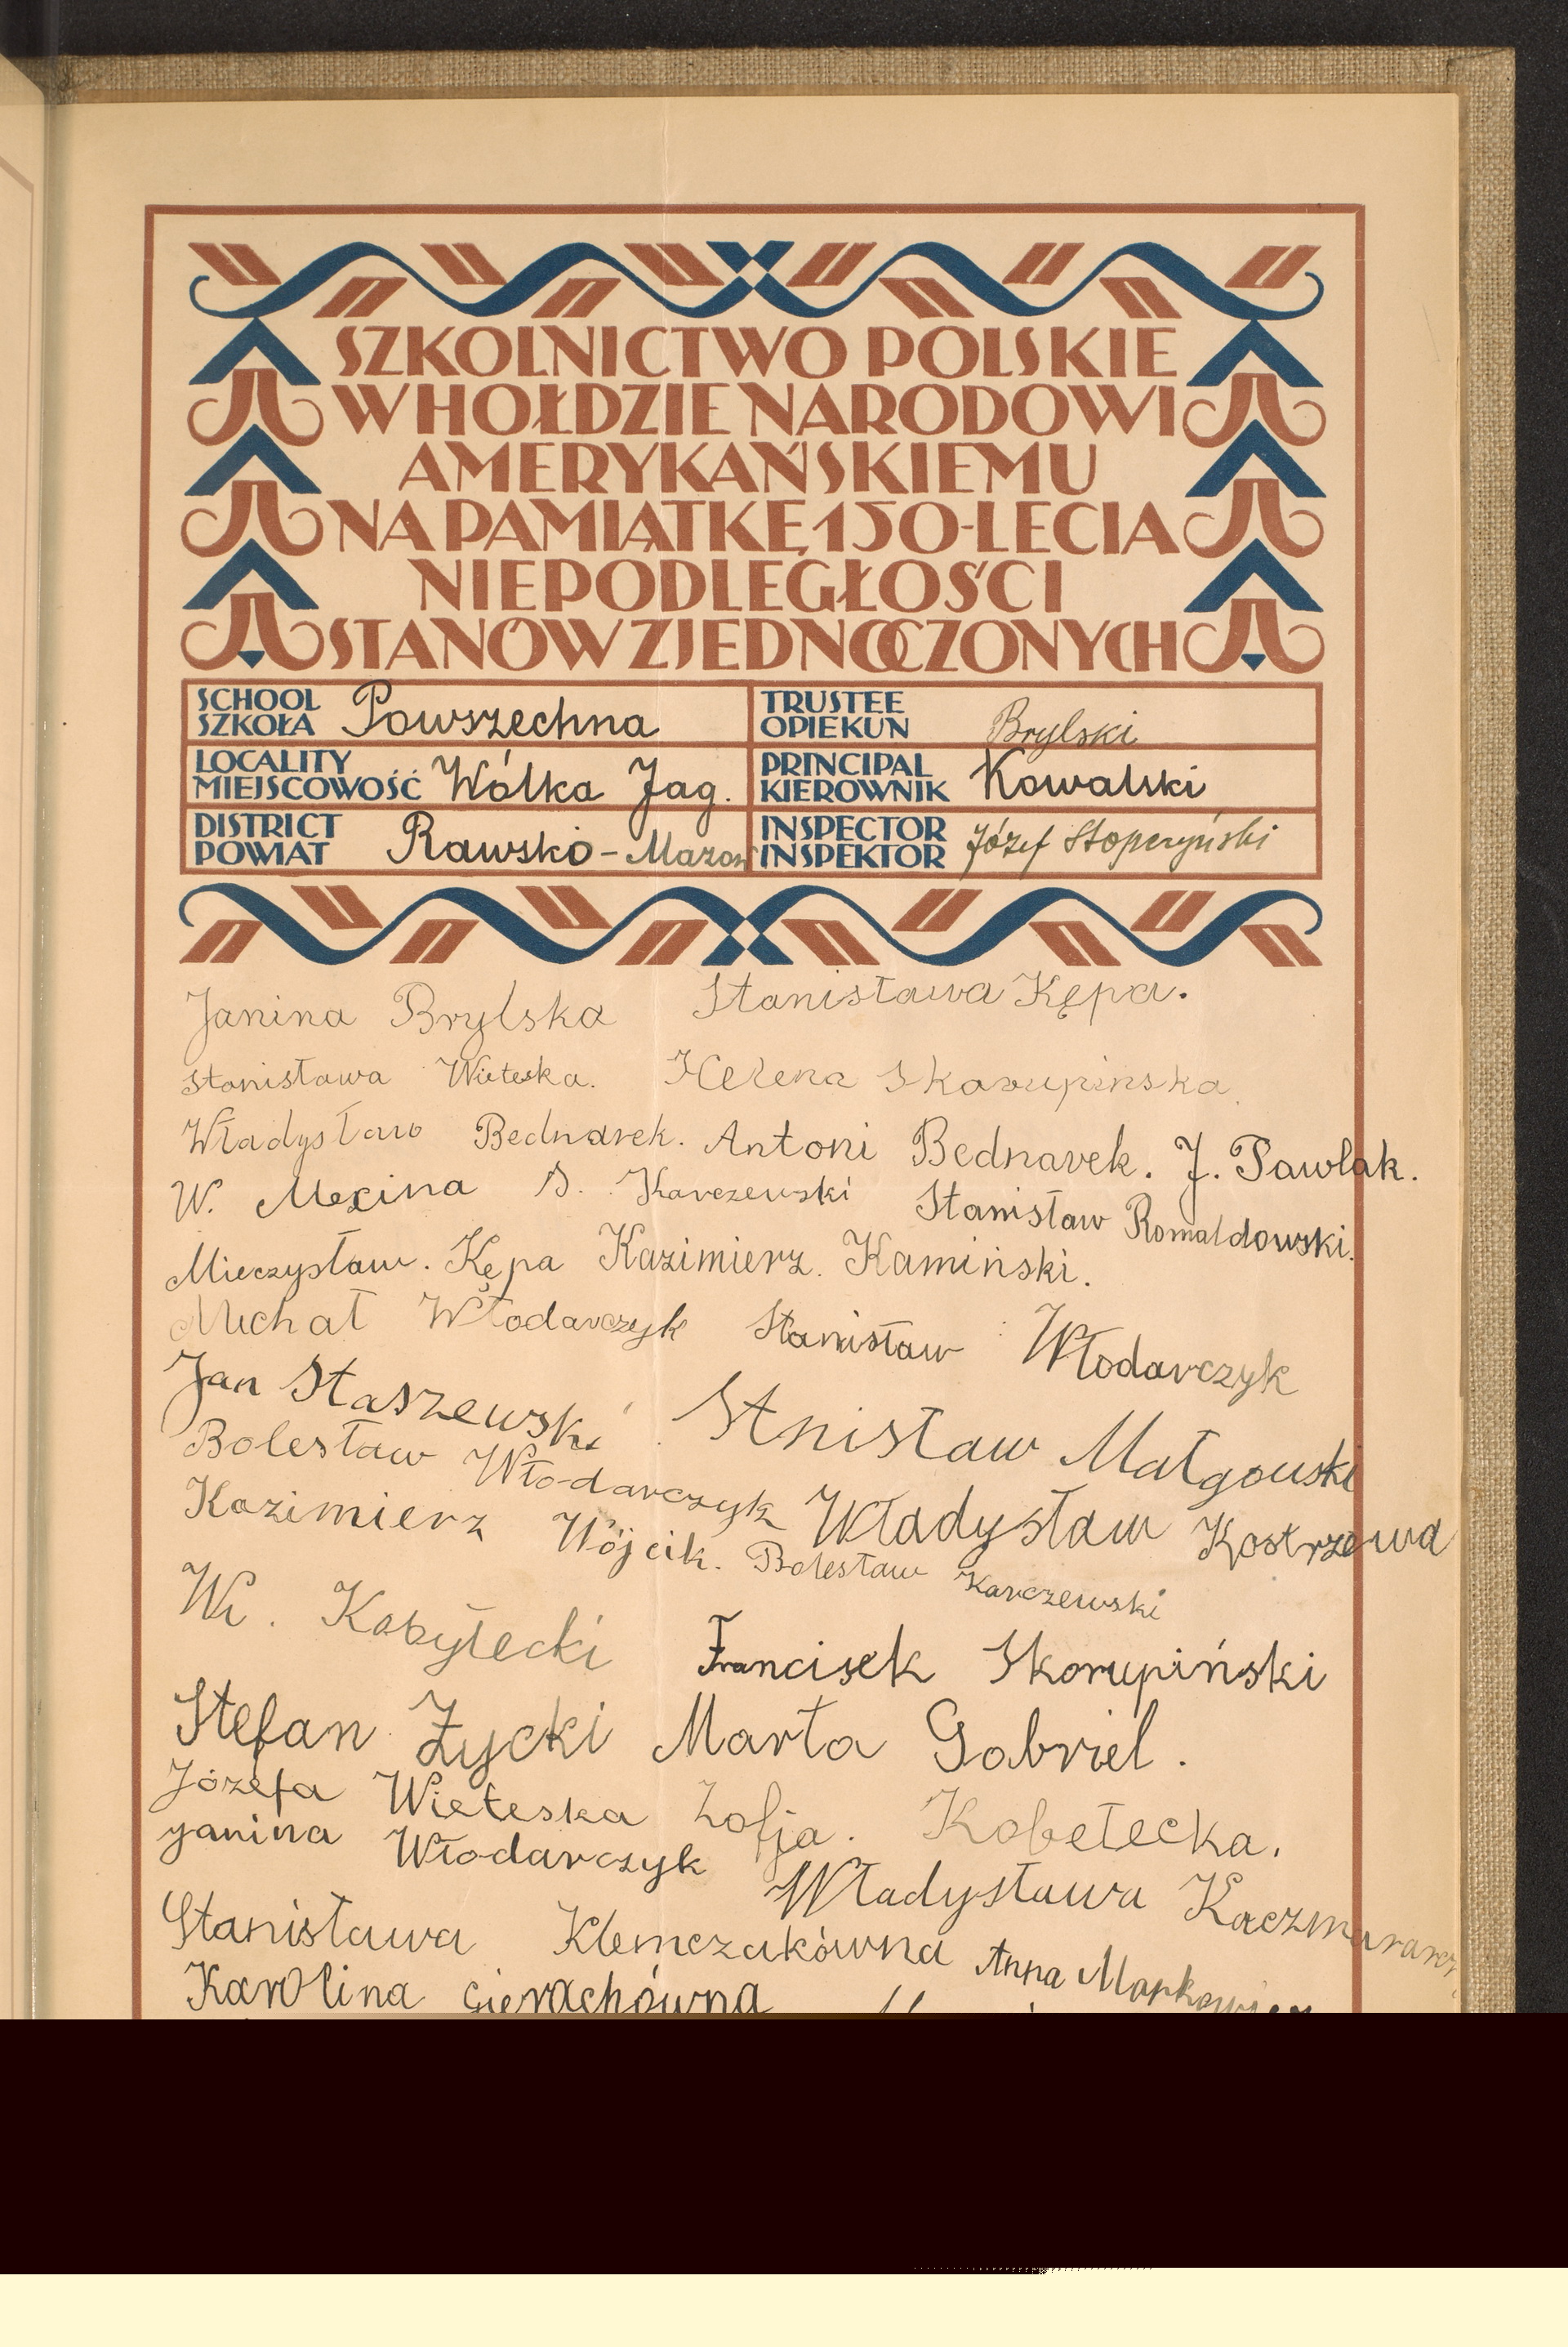 SZKOLNICTWO POLSKIE
W HOŁDZIE NARODOWI
AMERYKAŃSKIEMU
NA PAMIĄTKĘ 150-LECIA
NIEPODLEGŁOŚCI
STANÓW ZJEDNOCZONYCH
SCHOOL SZKOŁA Powszechna
TRUSTEE OPIEKUN Brylski
LOCALITY MIEJSCOWOŚĆ Wólka Jag.
PRINCIPAL KIEROWNIK Kowalski
DISTRICT POWIAT Rawsko-Mazow
INSPECTOR INSPEKTOR Józef Stoperzyński
Janina Brylska Stanisława Kępa.
Stanisława Wieteska. Helena Skorupinska.
Władysław Bednarek. Antoni Bednarek. J. Pawlak.
W. Mexina S. Karczewski Stanisław Romaldowski.
Mieczysław. Kępa Kazimierz. Kamiński.
Michał Włodarczyk Stanisław Włodarczyk
Jan Staszewski Stnisław Małgowski
Bolesław Włodarczyk Władysław Kostrzewa
Kazimierz Wójcik. Bolesław Karczewski
Wł. Kobyłecki Francisek Skorupiński
Stefan Życki Marta Gabriel.
Józefa Wieteska Zofja. Kobełecka.
Janina Włodarczyk Władysława
Stanisława Klemczakówna Anna Markowicz
Karolina Gierachówna